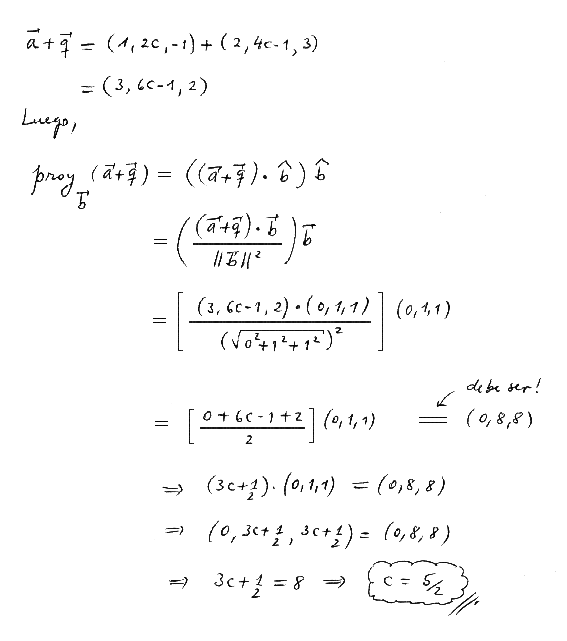 a⃗ + q⃗ = (1, 2c, -1) + (2, 4c-1, 3)
= (3, 6c-1, 2)
Luego,
proy_b⃗ (a⃗+q⃗) = ((a⃗+q⃗) · b̂) b̂
= ( (a⃗+q⃗) · b⃗ / ||b⃗||² ) b⃗
= [ (3, 6c-1, 2) · (0,1,1) / (√(0²+1²+1²))² ] (0,1,1)
debe ser!
= [ (0+6c-1+2) / 2 ] (0,1,1) = (0,8,8)
⇒ (3c+1/2) · (0,1,1) = (0,8,8)
⇒ (0, 3c+1/2, 3c+1/2) = (0,8,8)
⇒ 3c+1/2 = 8 ⇒ c = 5/2